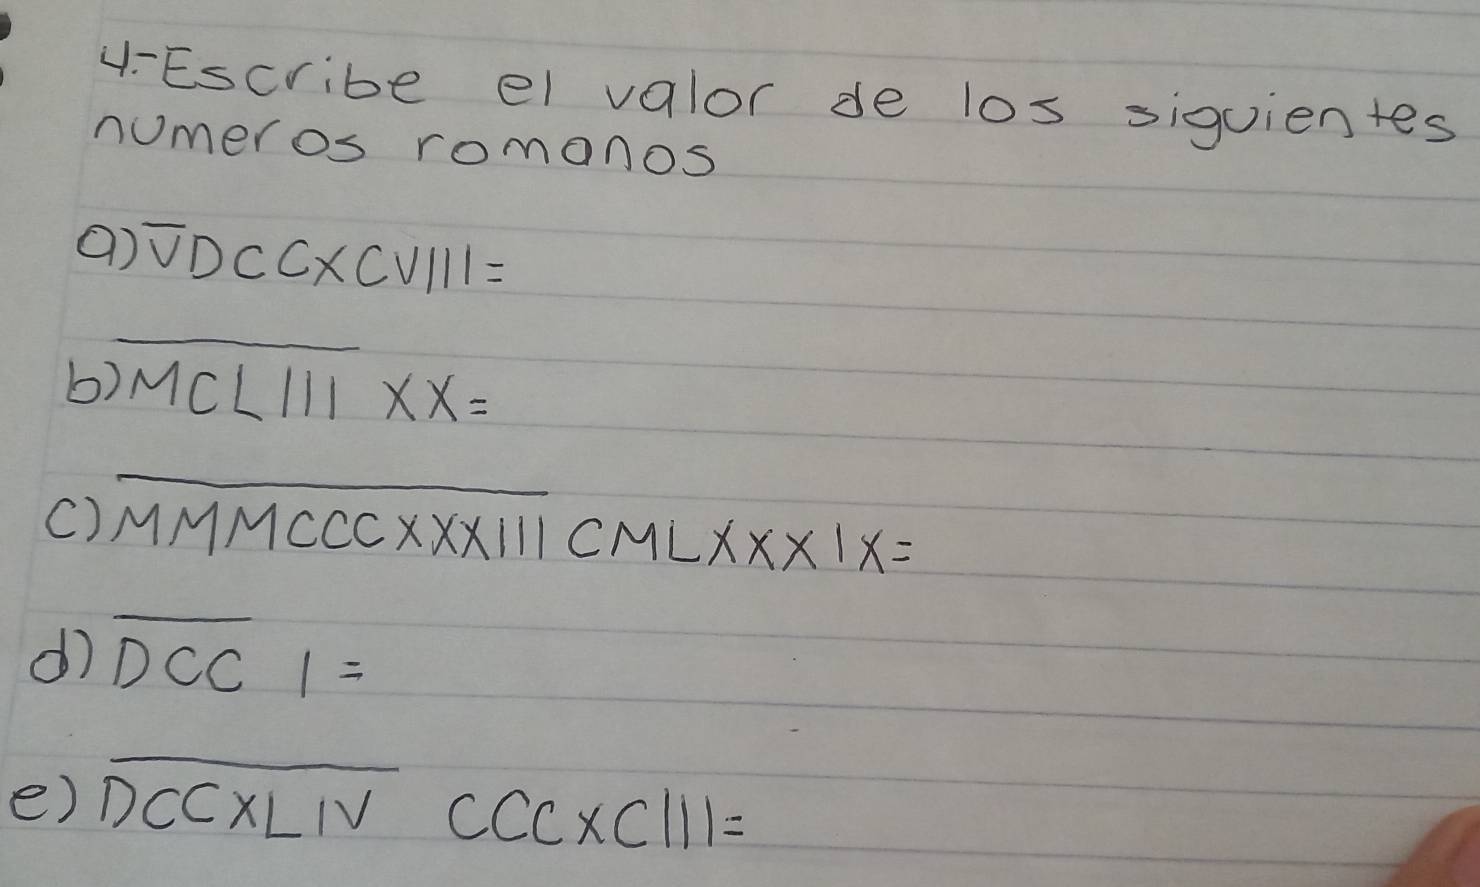 4.- Escribe el valor de los siguientes
numeros romanos
a) V̅DCCXCVIII=
b) M̅C̅L̅I̅I̅I̅ XX=
c) M̅M̅M̅C̅C̅C̅X̅X̅X̅I̅I̅I̅ CMLXXXIX=
d) D̅C̅C̅ I=
e) D̅C̅C̅X̅L̅I̅V̅ CCCXCIII=